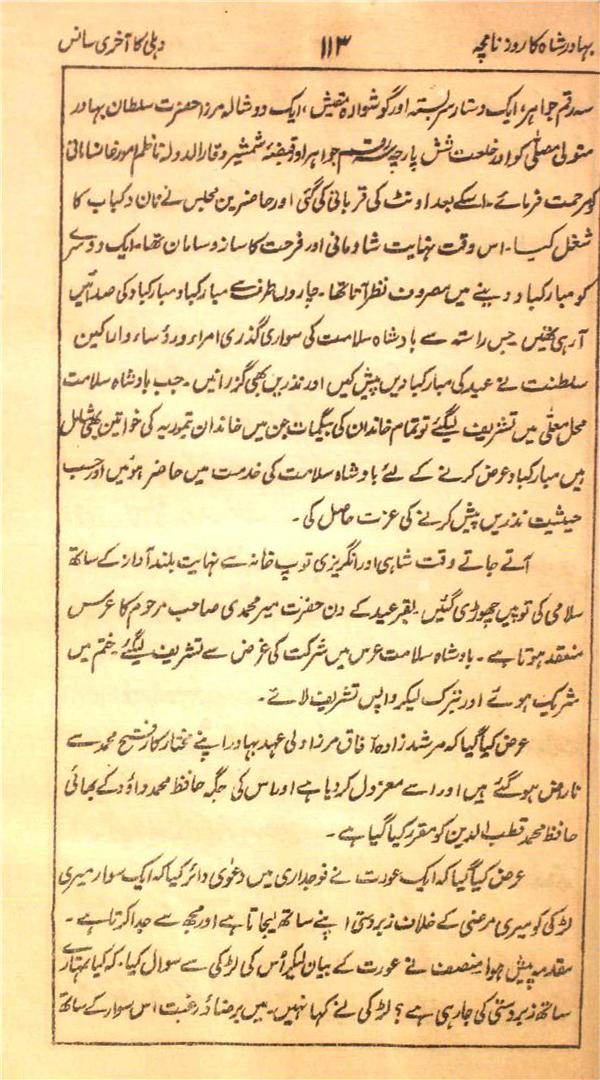 بہادر شاہ کا روزنامچہ ۱۱۳ دہلی کا آخری سانس
سہ رقم جواہر، ایک دستار سربستہ اور گوشوارہ مقیش، ایک دوشالہ مرزا حضرت سلطان بہادر
متولی مصلّٰی کو اور خلعت شش پارچہ سہ رقم جواہر اور قبضۂ شمشیر وقار الدولہ ناظم امور خانسامانی
کو مرحمت فرمائے۔ اسکے بعد اونٹ کی قربانی کی گئی اور حاضرین مجلس نے نان و کباب کا
شغل کیا۔ اس وقت نہایت شادمانی اور فرحت کا ساز و سامان تھا۔ ایک دوسرے
کو مبارکباد دینے میں مصروف نظر آتا تھا۔ چاروں طرف سے مبارکباد مبارکباد کی صدائیں
آرہی تھیں جس راستہ سے بادشاہ سلامت کی سواری گذری امراء ورؤساء واراکین
سلطنت نے عید کی مبارکبادیں پیش کیں اور نذریں بھی گزرانیں۔ جب بادشاہ سلامت
محل معلّٰی میں تشریف لیگئے تو تمام خاندان کی بیگمات جن میں خاندان تیموریہ کی خواتین بھی شامل
ہیں مبارکباد عرض کرنے کے لئے بادشاہ سلامت کی خدمت میں حاضر ہوئیں اور حسب
حیثیت نذریں پیش کرنے کی عزت حاصل کی۔
آتے جاتے وقت شاہی اور انگریزی توپ خانہ سے نہایت بلند آواز کے ساتھ
سلامی کی توپیں چھوڑی گئیں۔ بقرعید کے دن حضرت میر محمدی صاحب مرحوم کا عرس
منعقد ہوتا ہے۔ بادشاہ سلامت عرس میں شرکت کی غرض سے تشریف لیگئے۔ ختم میں
شریک ہوئے اور تبرک لیکر واپس تشریف لائے۔
عرض کیا گیا کہ مرشد زادہ آفاق مرزا ولی عہد بہادر اپنے مختار کار فصیح محمد سے
ناراض ہوگئے ہیں اور اسے معزول کردیا ہے اور اس کی جگہ حافظ محمد داؤد کے بھائی
حافظ محمد قطب الدین کو مقرر کیا گیا ہے۔
عرض کیا گیا کہ ایک عورت نے فوجداری میں دعوٰی دائر کیا کہ ایک سوار میری
لڑکی کو میری مرضی کے خلاف زبردستی اپنے ساتھ لیجاتا ہے اور مجھ سے جدا کرتا ہے۔
مقدمہ پیش ہوا منصف نے عورت کے بیان لیکر اُس کی لڑکی سے سوال کیا۔ کہ کیا تمہارے
ساتھ زبردستی کی جارہی ہے؟ لڑکی نے کہا نہیں۔ میں برضا ورغبت اس سوار کے ساتھ